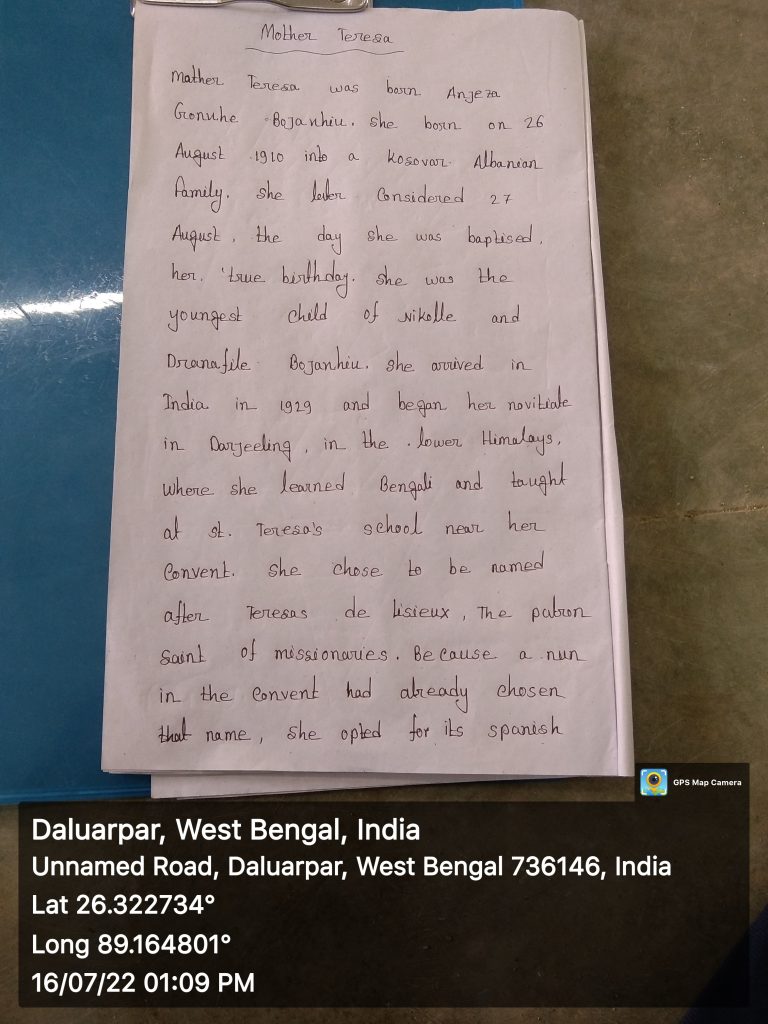 Mother Teresa
Mather Teresa was born Anjeza
Gronuhe Bojanhiu. she born on 26
August 1910 into a kosovar Albanian
family. she later Considered 27
August, the day she was baptised,
her, 'true birthday. she was the
youngest child of Nikolle and
Dranafile Bojanhiu. she arrived in
India in 1929 and began her novitiate
in Darjeeling, in the lower Himalays,
where she learned Bengali and taught
at st. Teresa's school near her
Convent. she chose to be named
after Teresas de Lisieux, The patron
Saint of missionaries. Because a nun
in the convent had already chosen
that name, she opted for its spanish
GPS Map Camera
Daluarpar, West Bengal, India
Unnamed Road, Daluarpar, West Bengal 736146, India
Lat 26.322734°
Long 89.164801°
16/07/22 01:09 PM